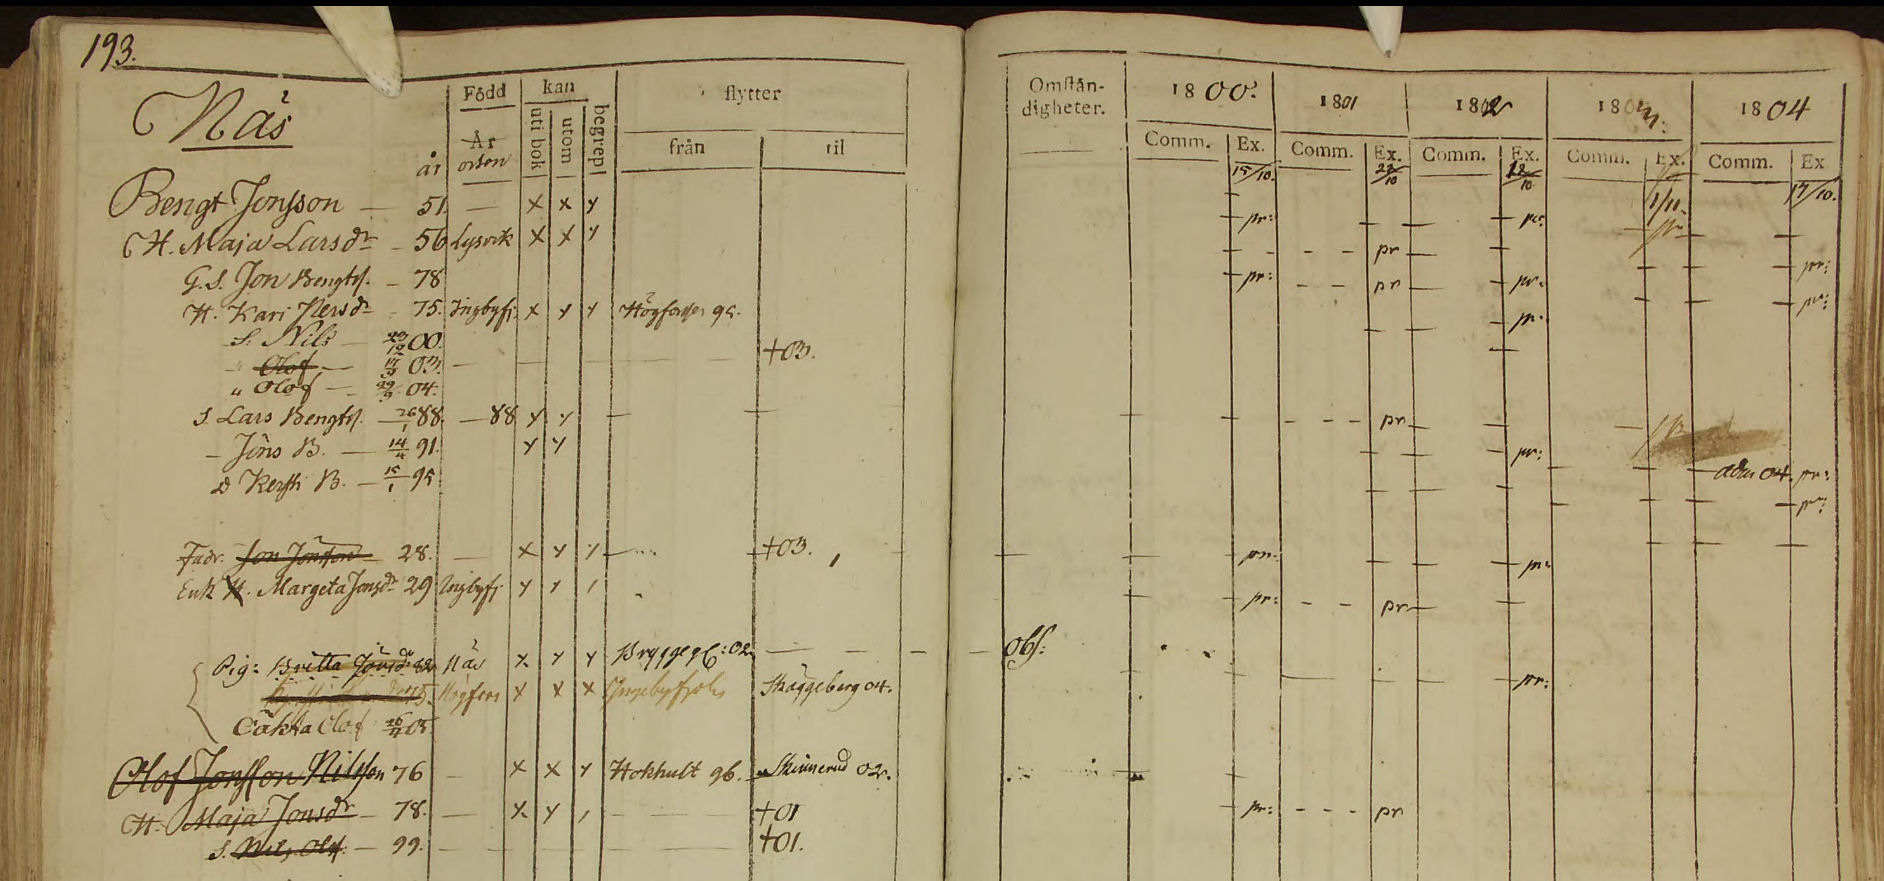 193.
Näs
år
Född
År
orten
kan
uti bok
utom
begrep
flytter
från
til
Omstän-
digheter.
1800.
1801
1802
180
1804
Comm. Ex. Comm. Ex. Comm. Ex. Comm. Ex. Comm. Ex
15/10. 22/10 12/10 1/11. 17/10.
Bengt Jonsson — 51. — x x y
H. Maja Larsdr — 56 Lysvik x x y — pr: — — — pr: — —
G. S. Jon Bengts. — 78 — - - - pr — — — — pr:
H. Kari Persdr — 75. Ingbyfj. x y y Högforsen 95. — pr: - - pr — — pr: — — pr:
S. Nils — 23/12 00. — — pr:
" Olof — 03. — — — — +03. —
" Olof — 29/9 04.
S. Lars Bengts. — 26/1 88. — 88 y y — — — — - - - pr — — —
— Jöns B. — 14/4 91. y y — — pr: — — adm 04. pr:
D Kersti B. — 15/1 95 — — — — — — pr:
Fadr. Jon Jonsson — 28. — x y y — +03. — — — pr: — — — pr: — — —
Enk H. Margeta Jonsdr 29 Ingbyfj. y y — — pr: - - pr — —
Pig: Britta Jönsdr 82 Näs x y y Bryggeg: 02 — — — — obs:
75. Högfors x x x Ingebyfjole Skäggeberg 04. — — — — — pr:
Oäkta Olof 05.
Olof Jonsson Nilsson 76 — x x y Hokhult 96. Skinnerud 02. — —
H. Maja Jonsdr — 78. — x y — — — +01 — pr: - - - pr
S. Nils Olof. — 99. — — — — — +01.